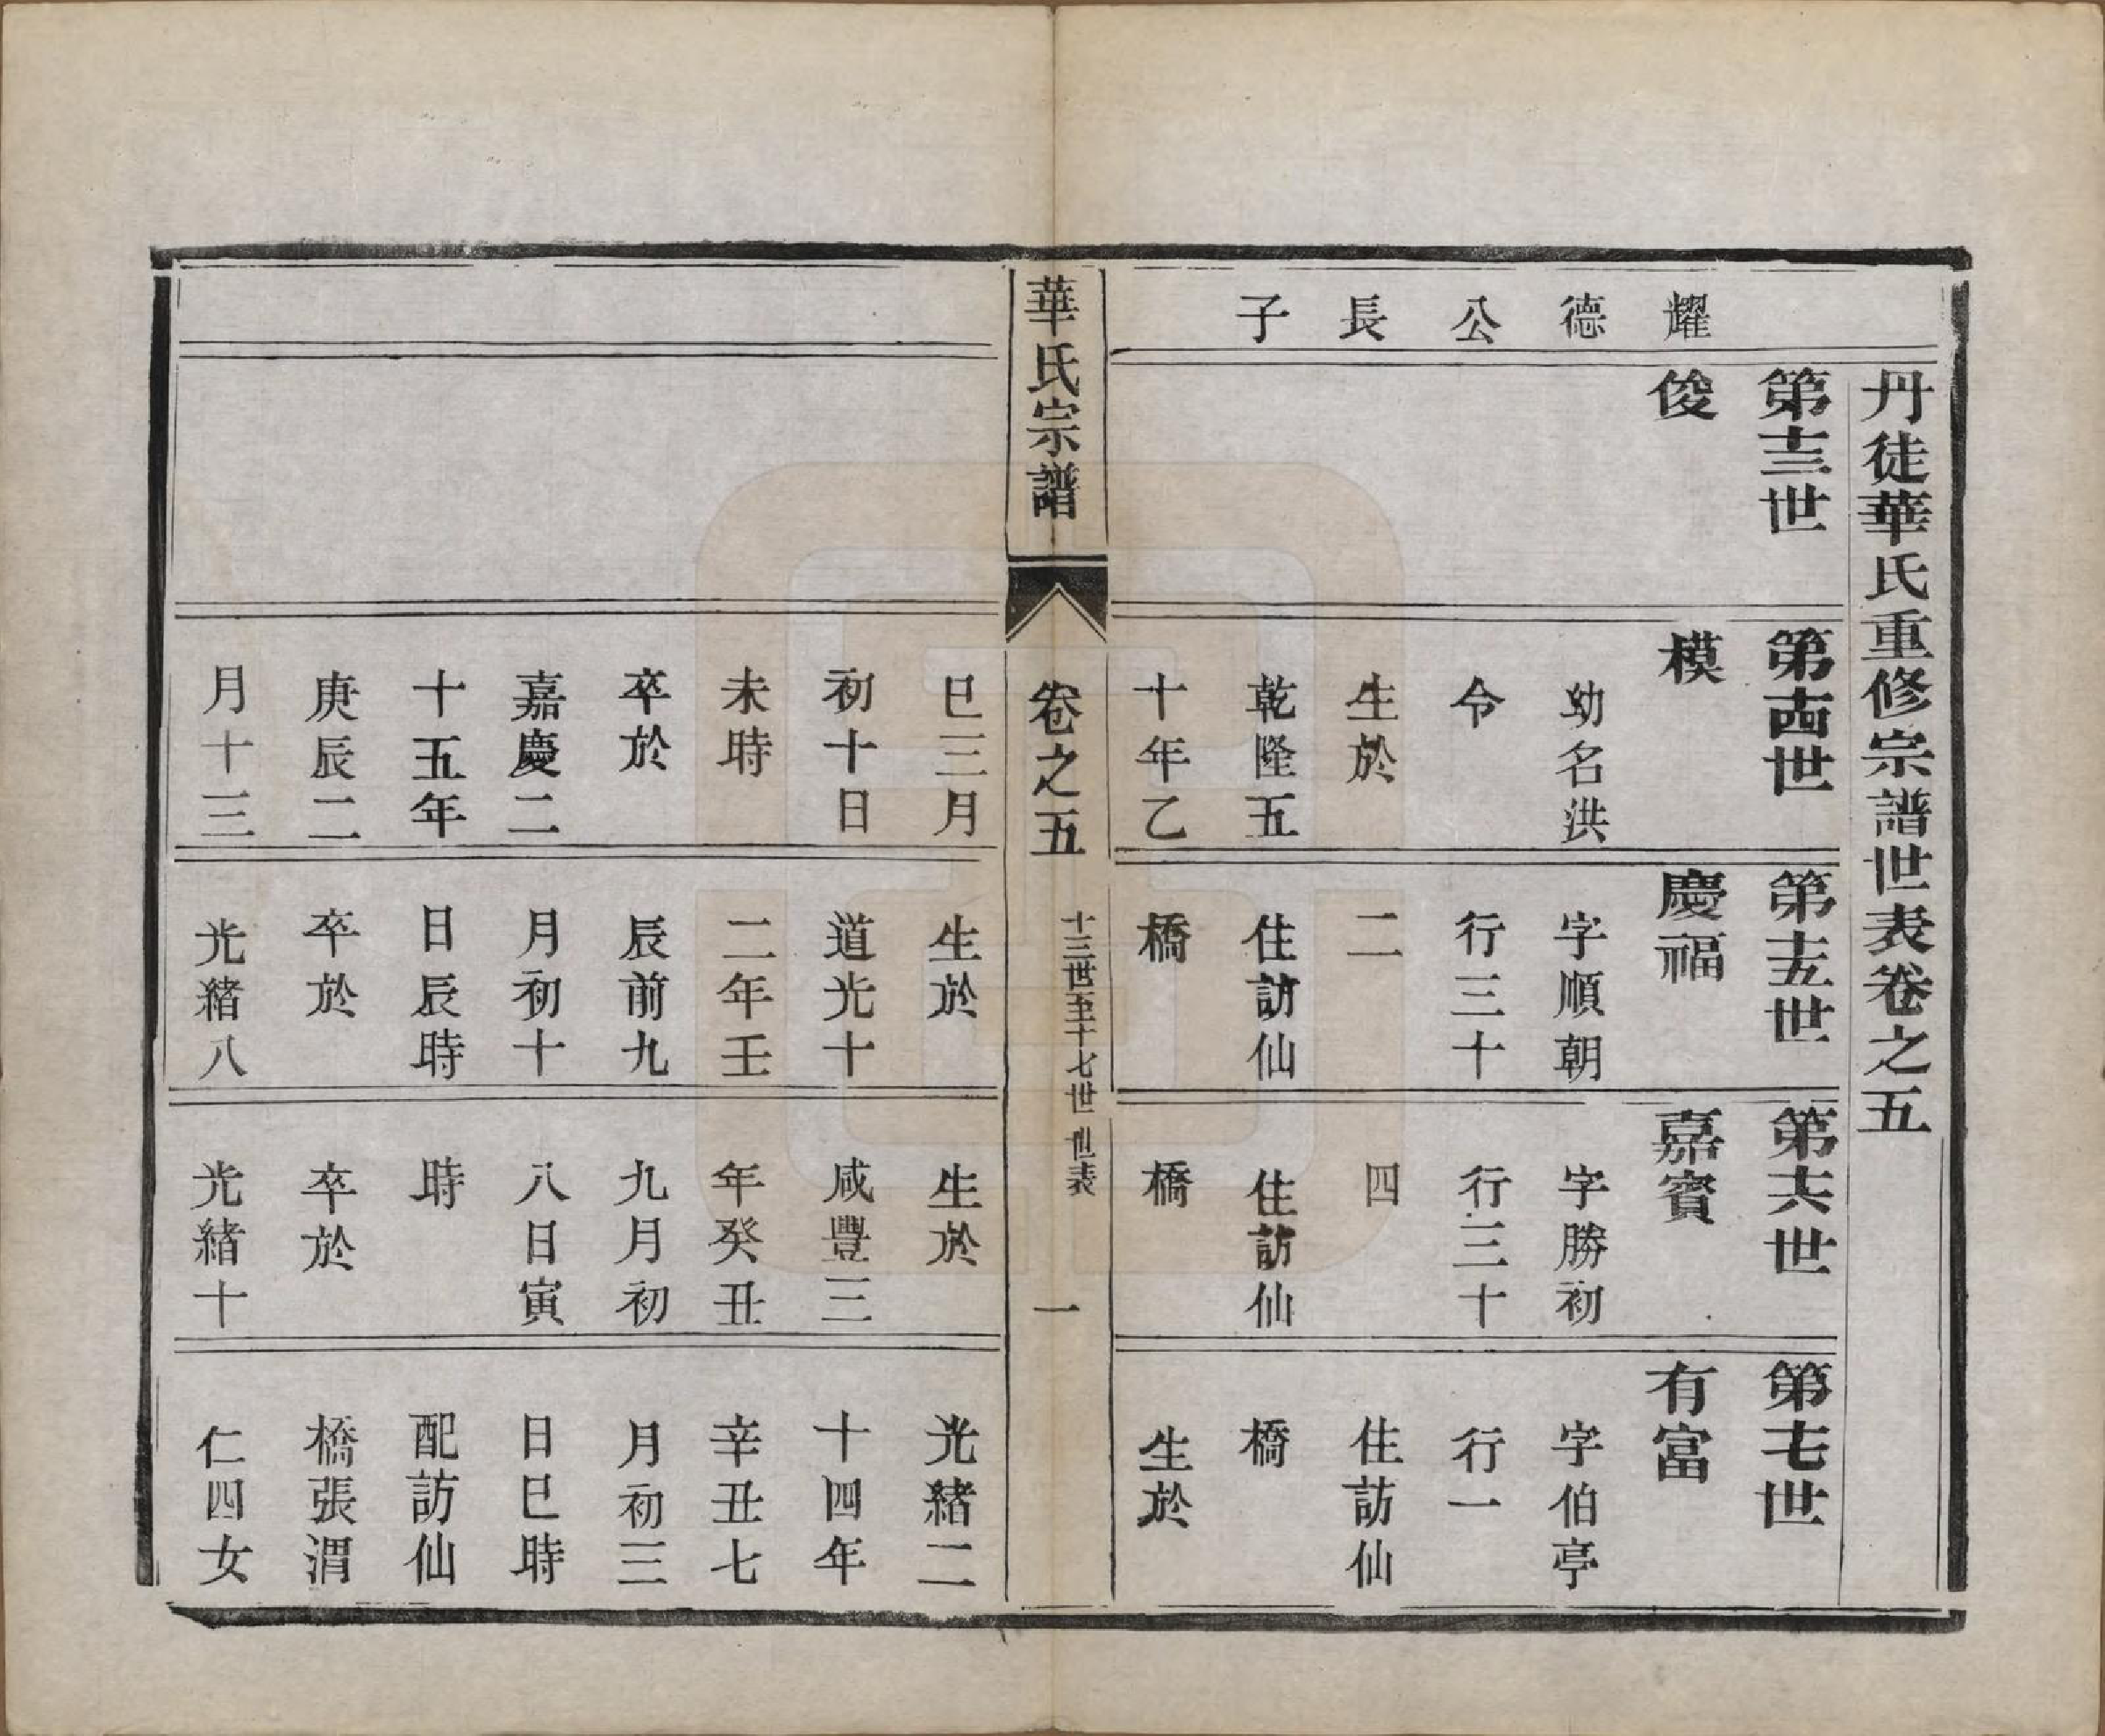 丹徒華氏重修宗譜世表卷之五
耀德公長子
第十三世
俊
第十四世
模
幼名洪
令
生於
乾隆五
十年乙
第十五世
慶福
字順朝
行三十
二
住訪仙
橋
第十六世
嘉賓
字勝初
行三十
四
住訪仙
橋
第十七世
有富
字伯亭
行一
住訪仙
橋
生於
華氏宗譜
卷之五
十三世至十七世 世表
一
巳三月
初十日
未時
卒於
嘉慶二
十五年
庚辰二
月十三
生於
道光十
二年壬
辰前九
月初十
日辰時
卒於
光緒八
生於
咸豐三
年癸丑
九月初
八日寅
時
卒於
光緒十
光緒二
十四年
辛丑七
月初三
日巳時
配訪仙
橋張渭
仁四女